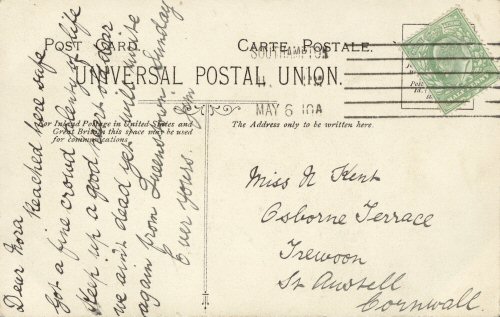 POST CARD.
CARTE POSTALE.
UNIVERSAL POSTAL UNION.
SOUTHAMPTON
MAY 6 10A
For Inland Postage in United States and
Great Britain this space may be used
for communications.
The Address only to be written here.
Dear Nora
Reached here safe
got a fine crowd plenty of life
Keep up a good heart old dear
we ain't dead yet will write
again from Queenstown Sunday
Ever yours
Jim
Miss N Kent
Osborne Terrace
Trewoon
St Austell
Cornwall